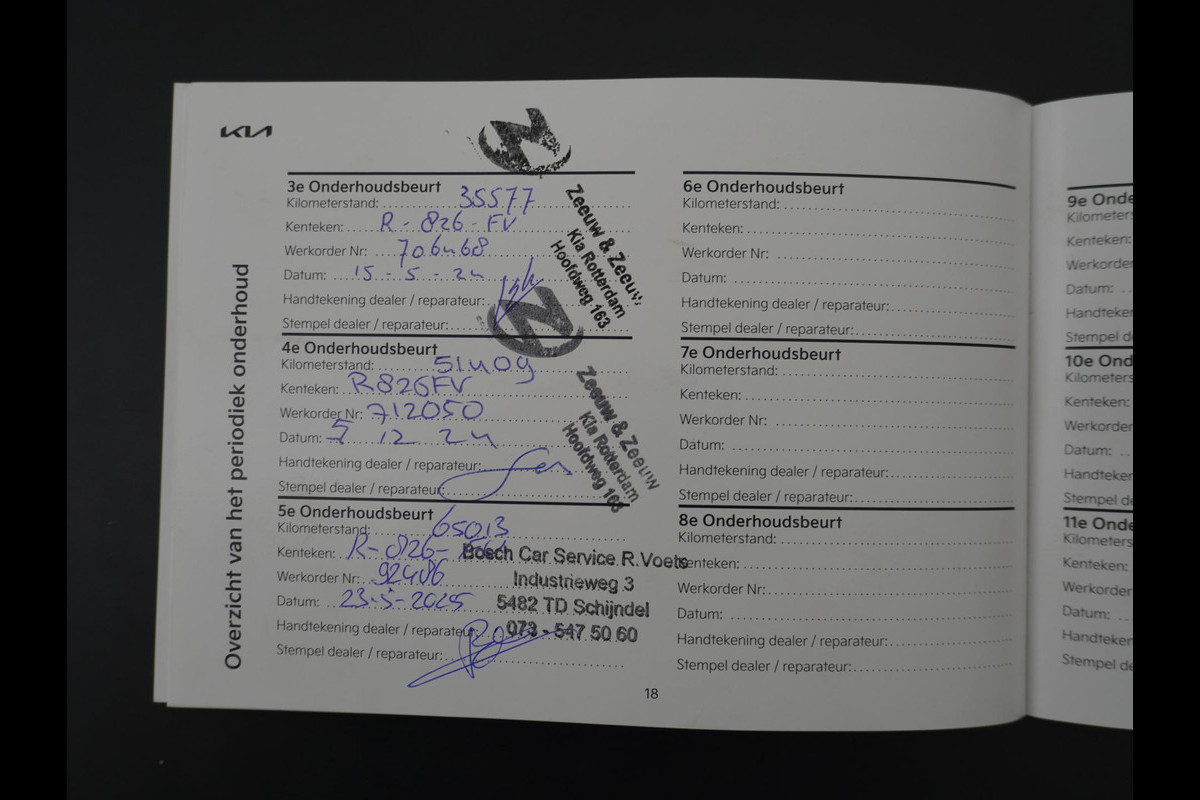 KIA
Overzicht van het periodiek onderhoud
3e Onderhoudsbeurt
Kilometerstand: 35577
Kenteken: R-826-FV
Werkorder Nr: 706468
Datum: 15-5-24
Handtekening dealer / reparateur:
Stempel dealer / reparateur:
Zeeuw & Zeeuw
Kia Rotterdam
Hoofdweg 163
4e Onderhoudsbeurt
Kilometerstand: 51409
Kenteken: R826FV
Werkorder Nr: 712050
Datum: 5 12 24
Handtekening dealer / reparateur:
Stempel dealer / reparateur:
Zeeuw & Zeeuw
Kia Rotterdam
Hoofdweg 163
5e Onderhoudsbeurt
Kilometerstand: 65013
Kenteken: R-826-
Werkorder Nr: 92486
Datum: 23-5-2025
Handtekening dealer / reparateur:
Stempel dealer / reparateur:
Bosch Car Service R.Voets
Industrieweg 3
5482 TD Schijndel
073 - 547 50 60
6e Onderhoudsbeurt
Kilometerstand:
Kenteken:
Werkorder Nr:
Datum:
Handtekening dealer / reparateur:
Stempel dealer / reparateur:
7e Onderhoudsbeurt
Kilometerstand:
Kenteken:
Werkorder Nr:
Datum:
Handtekening dealer / reparateur:
Stempel dealer / reparateur:
8e Onderhoudsbeurt
Kilometerstand:
Kenteken:
Werkorder Nr:
Datum:
Handtekening dealer / reparateur:
Stempel dealer / reparateur:
18
9e Onde
Kilometers
Kenteken:
Werkorder
Datum:
Handteker
Stempel de
10e Ond
Kilometers
Kenteken:
Werkorder
Datum:
Handteker
Stempel de
11e Onde
Kilometers
Kenteken:
Werkorder
Datum:
Handteke
Stempel de